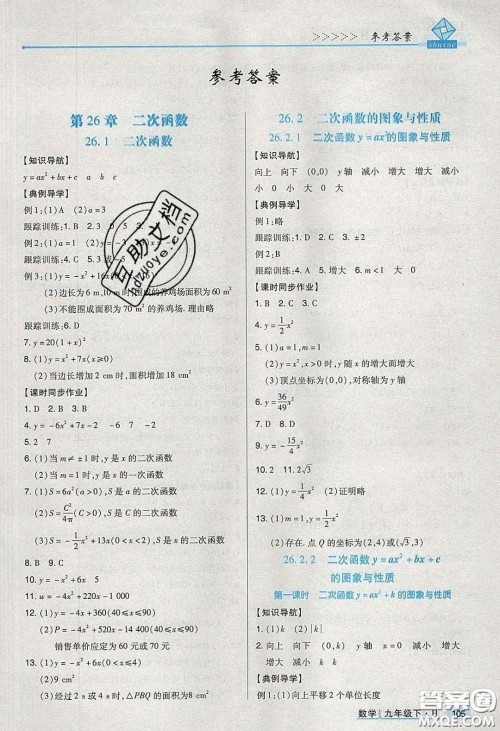 >>>>> 参考答案
shuxue
参考答案
第26章 二次函数
26.1 二次函数
【知识导航】
y=ax²+bx+c a b c
【典例导学】
例1:(1)A (2)a=3
跟踪训练:1.B 2.
例2:(1)
跟踪训练:4.C 5.
例3:(1)y=-x²+
(2)边长为6 m,10 m时,围成的养鸡场面积为60 m²
(3)不能围成面积为70 m²的养鸡场.理由略
跟踪训练:6.D
7.y=20(1+x)²
8.(1)y=x²+7x(x≥0)
(2)当边长增加2 cm时,面积增加18 cm²
【课时同步作业】
1.D 2.B 3.D
4.y=-x²+7 -1 0 7
5.2 7
6.(1)当m≠±1时,y是x的二次函数
(2)当m=-1时,y是x的一次函数
7.(1)S=6a²(a>0),S是a的二次函数
(2)S=C²/4π(C>0),S是C的二次函数
(3)S=-1/2x²+13x(0<x<26),S是x的二次函数
8.B 9.A
10.y=-x²+6x
11.w=-4x²+220x-1 000
12.(1)y=-4x+360(40≤x≤90)
(2)P=-4x²+520x-14 400(40≤x≤90)
销售单价应定为60元或70元
13.(1)y=-4x²+24x
(2)0<x<6
26.2 二次函数的图象与性质
26.2.1 二次函数y=ax²的图象与性质
【知识导航】
向上 向下 (0,0) y轴 减小 增大 增大 减小
小 0 小 0 大 0 大 0
【典例导学】
例1:略
跟踪训练:1.D 2.C 3.±2
例2:B
跟踪训练:4.A 5.D 6.m<1 大 0
【课时同步作业】
1.B 2.D 3.A
4.y=1/2x²
5.(1)a=1,m=1
(2)当x>0时,y随x的增大而增大
(3)顶点坐标为(0,0),对称轴为y轴
6.y=36/49x²
7.B 8.B
9.y=-15/4x²
10.2 11.4
12.(1)y=1/2x² (2)证明略
13.(1)m=1,y=1/3x²
(2)存在.点Q的坐标为(2,3)或(√3,3)
26.2.2 二次函数y=ax²+bx+c
的图象与性质
第一课时 二次函数y=ax²+k的图象与性质
【知识导航】
1.(0,k) k
2.向上 向下 y轴 x=0
【典例导学】
例1:(1)向上平移2个单位长度
数学 九年级下·H 105
互助文档
hdzuoye.com
答案圈
MXQE.COM